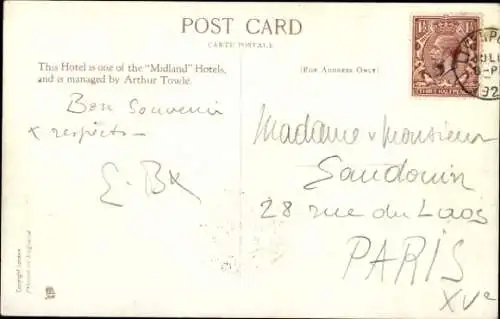 POST CARD
CARTE POSTALE
This Hotel is one of the "Midland" Hotels,
and is managed by Arthur Towle.
(For Address Only)
Bon Souvenir
x respects
Madame x Monsieur
Gaudouin
28 rue du Laos
PARIS
XVe
THREE HALFPENCE